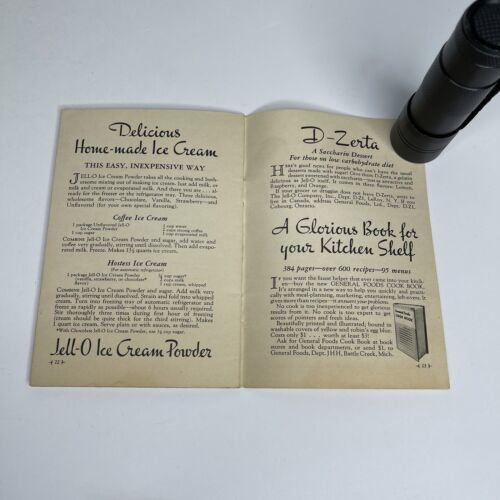 Delicious
Home-made Ice Cream
THIS EASY, INEXPENSIVE WAY
JELL-O Ice Cream Powder takes all the cooking and both-
ersome mixing out of making ice cream. Just add milk, or
milk and cream or evaporated milk. And there you are . . . all-
ready for the freezer or the refrigerator way. Three delicious,
wholesome flavors—Chocolate, Vanilla, Strawberry—and
Unflavored (for your own special flavoring).
Coffee Ice Cream
1 package Unflavored Jell-O
Ice Cream Powder
1 cup sugar
1 cup water
3 cups milk
COMBINE Jell-O Ice Cream Powder and sugar, add water and
coffee very gradually, stirring until dissolved. Then add evapo-
rated milk. Freeze. Makes 1½ quarts ice cream.
Hostess Ice Cream
(For automatic refrigerator)
1 package Jell-O Ice Cream Powder
(vanilla, strawberry, or chocolate*
flavor)
¼ cup sugar*
1 cup cream, whipped
COMBINE Jell-O Ice Cream Powder and sugar. Add milk very
gradually, stirring until dissolved. Strain and fold into whipped
cream. Turn into freezing tray of automatic refrigerator and
freeze as rapidly as possible—about 6 hours usually required.
Stir thoroughly three times during first hour of freezing
(cream should be quite thick for the third stirring). Makes 1
quart ice cream. Serve plain or with sauces, as desired.
*With Chocolate Jell-O Ice Cream Powder, use ¼ cup sugar.
Jell-O Ice Cream Powder
22
D-Zerta
A Saccharin Dessert
For those on low carbohydrate diet
HERE'S good news for people who can't have the usual
desserts made with sugar! Give them D-Zerta, a gelatin
dessert sweetened with saccharin—just as attractive and
delicious as Jell-O itself. It comes in three flavors: Lemon,
Raspberry, and Orange.
If your grocer or druggist does not have D-Zerta, write to
The Jell-O Company, Inc., Dept. D-Z1, LeRoy, N. Y. If you
live in Canada, address General Foods, Ltd., Dept. D-Z1,
Cobourg, Ontario.
A Glorious Book for
your Kitchen Shelf
384 pages—over 600 recipes—95 menus
IF you want the finest helper that ever came into your kitch-
en—buy the new GENERAL FOODS COOK BOOK.
It's arranged in a new way to help you quickly and practi-
cally with meal-planning, marketing, entertaining, left-overs. It
also includes menus for every occasion.
No cook is too inexperienced to get glorious
results from it. No cook is too expert to get
scores of pointers and fresh ideas.
Beautifully printed and illustrated; bound in
washable covers of yellow and robin's egg blue.
Cost only $1 . . . worth at least $3!
Ask for General Foods Cook Book at book
stores and book departments, or send $1. to
General Foods, Dept. JHH, Battle Creek, Mich.
23